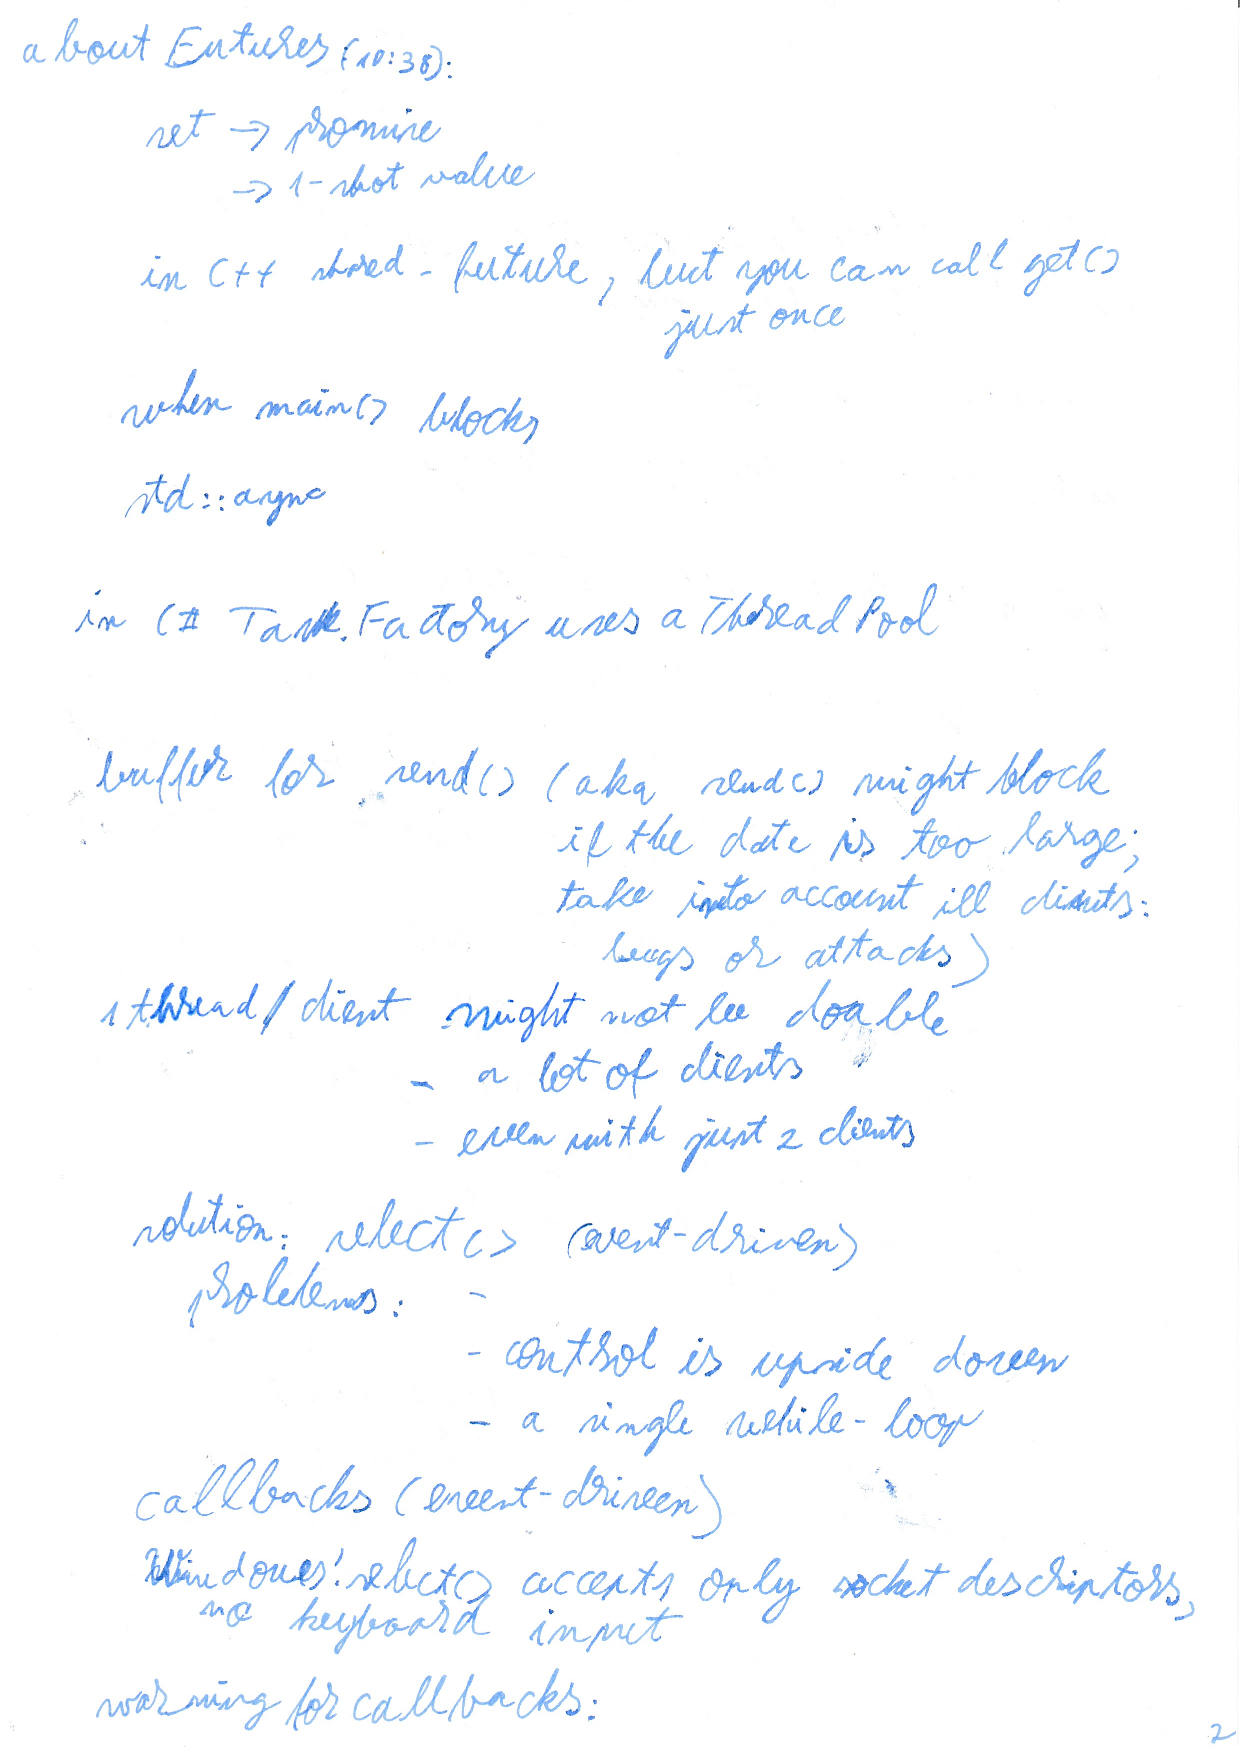 about Futures (10:38):
set → promise
→ 1-shot value
in C++ shared_future, but you can call get()
just once
when main() blocks
std::async
in C# Task.Factory uses a ThreadPool
buffer for send() (aka send() might block
if the date is too large;
take into account ill clients:
bugs or attacks)
1 thread/client might not be doable
- a lot of clients
- even with just 2 clients
solution: select() (event-driven)
problems: -
- control is upside down
- a single while-loop
callbacks (event-driven)
Windows' select() accepts only socket descriptors,
no keyboard input
warning for callbacks:
2